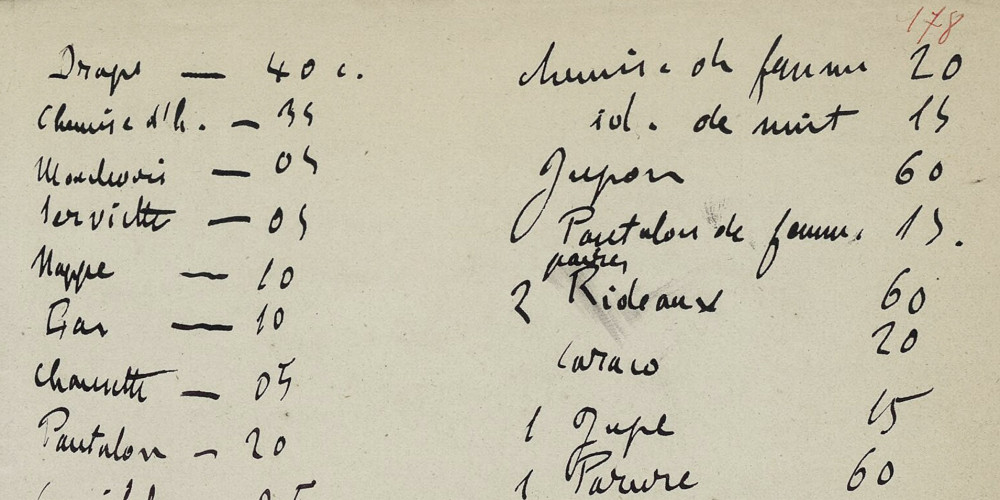 178
Draps — 40 c.
Chemise d'h. — 35
Mouchoirs — 05
Serviette — 05
Nappe — 10
— 10
Chaussette — 05
Pantalon — 20
chemise de femme 20
id. de nuit 15
Jupon 60
Pantalon de femme. 15.
paires
2 Rideaux 60
caraco 20
1 Jupe 15
1 Parure 60